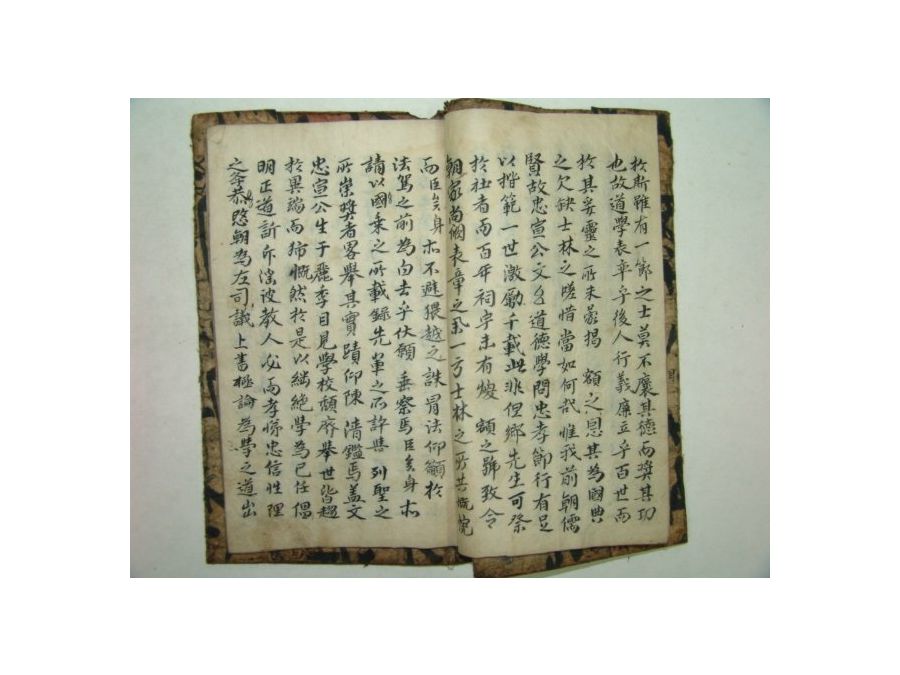 於斯雖有一節之士莫不褒其德而奬其功
也故道學表章乎後人行義廉立乎百世而
於其妥靈之所未蒙揭額之恩其為國典
之欠缺士林之嗟惜當如何哉惟我前朝儒
賢故忠宣公文 道德學問忠孝節行有足
以楷範一世激勵千載此非但鄉先生可祭
於社者而百年祠宇未有 額之號致令
朝家尚闕表章之典一方士林之所共慨惋
而臣矣身亦不避猥越之誅冒法仰籲於
法駕之前為白去乎伏願 垂察焉臣矣身亦
請以國乘之所載錄先輩之所許與列聖之
所崇奬者畧舉其實蹟仰陳 清鑑焉盖文
忠宣公生于麗季目見學校頹廢舉世皆趨
於異端而慨然於是以繼絕學為己任倡
明正道訴斥淫詖教人必而孝悌忠信性理
之 恭愍朝為左司議上書極論為學之道出